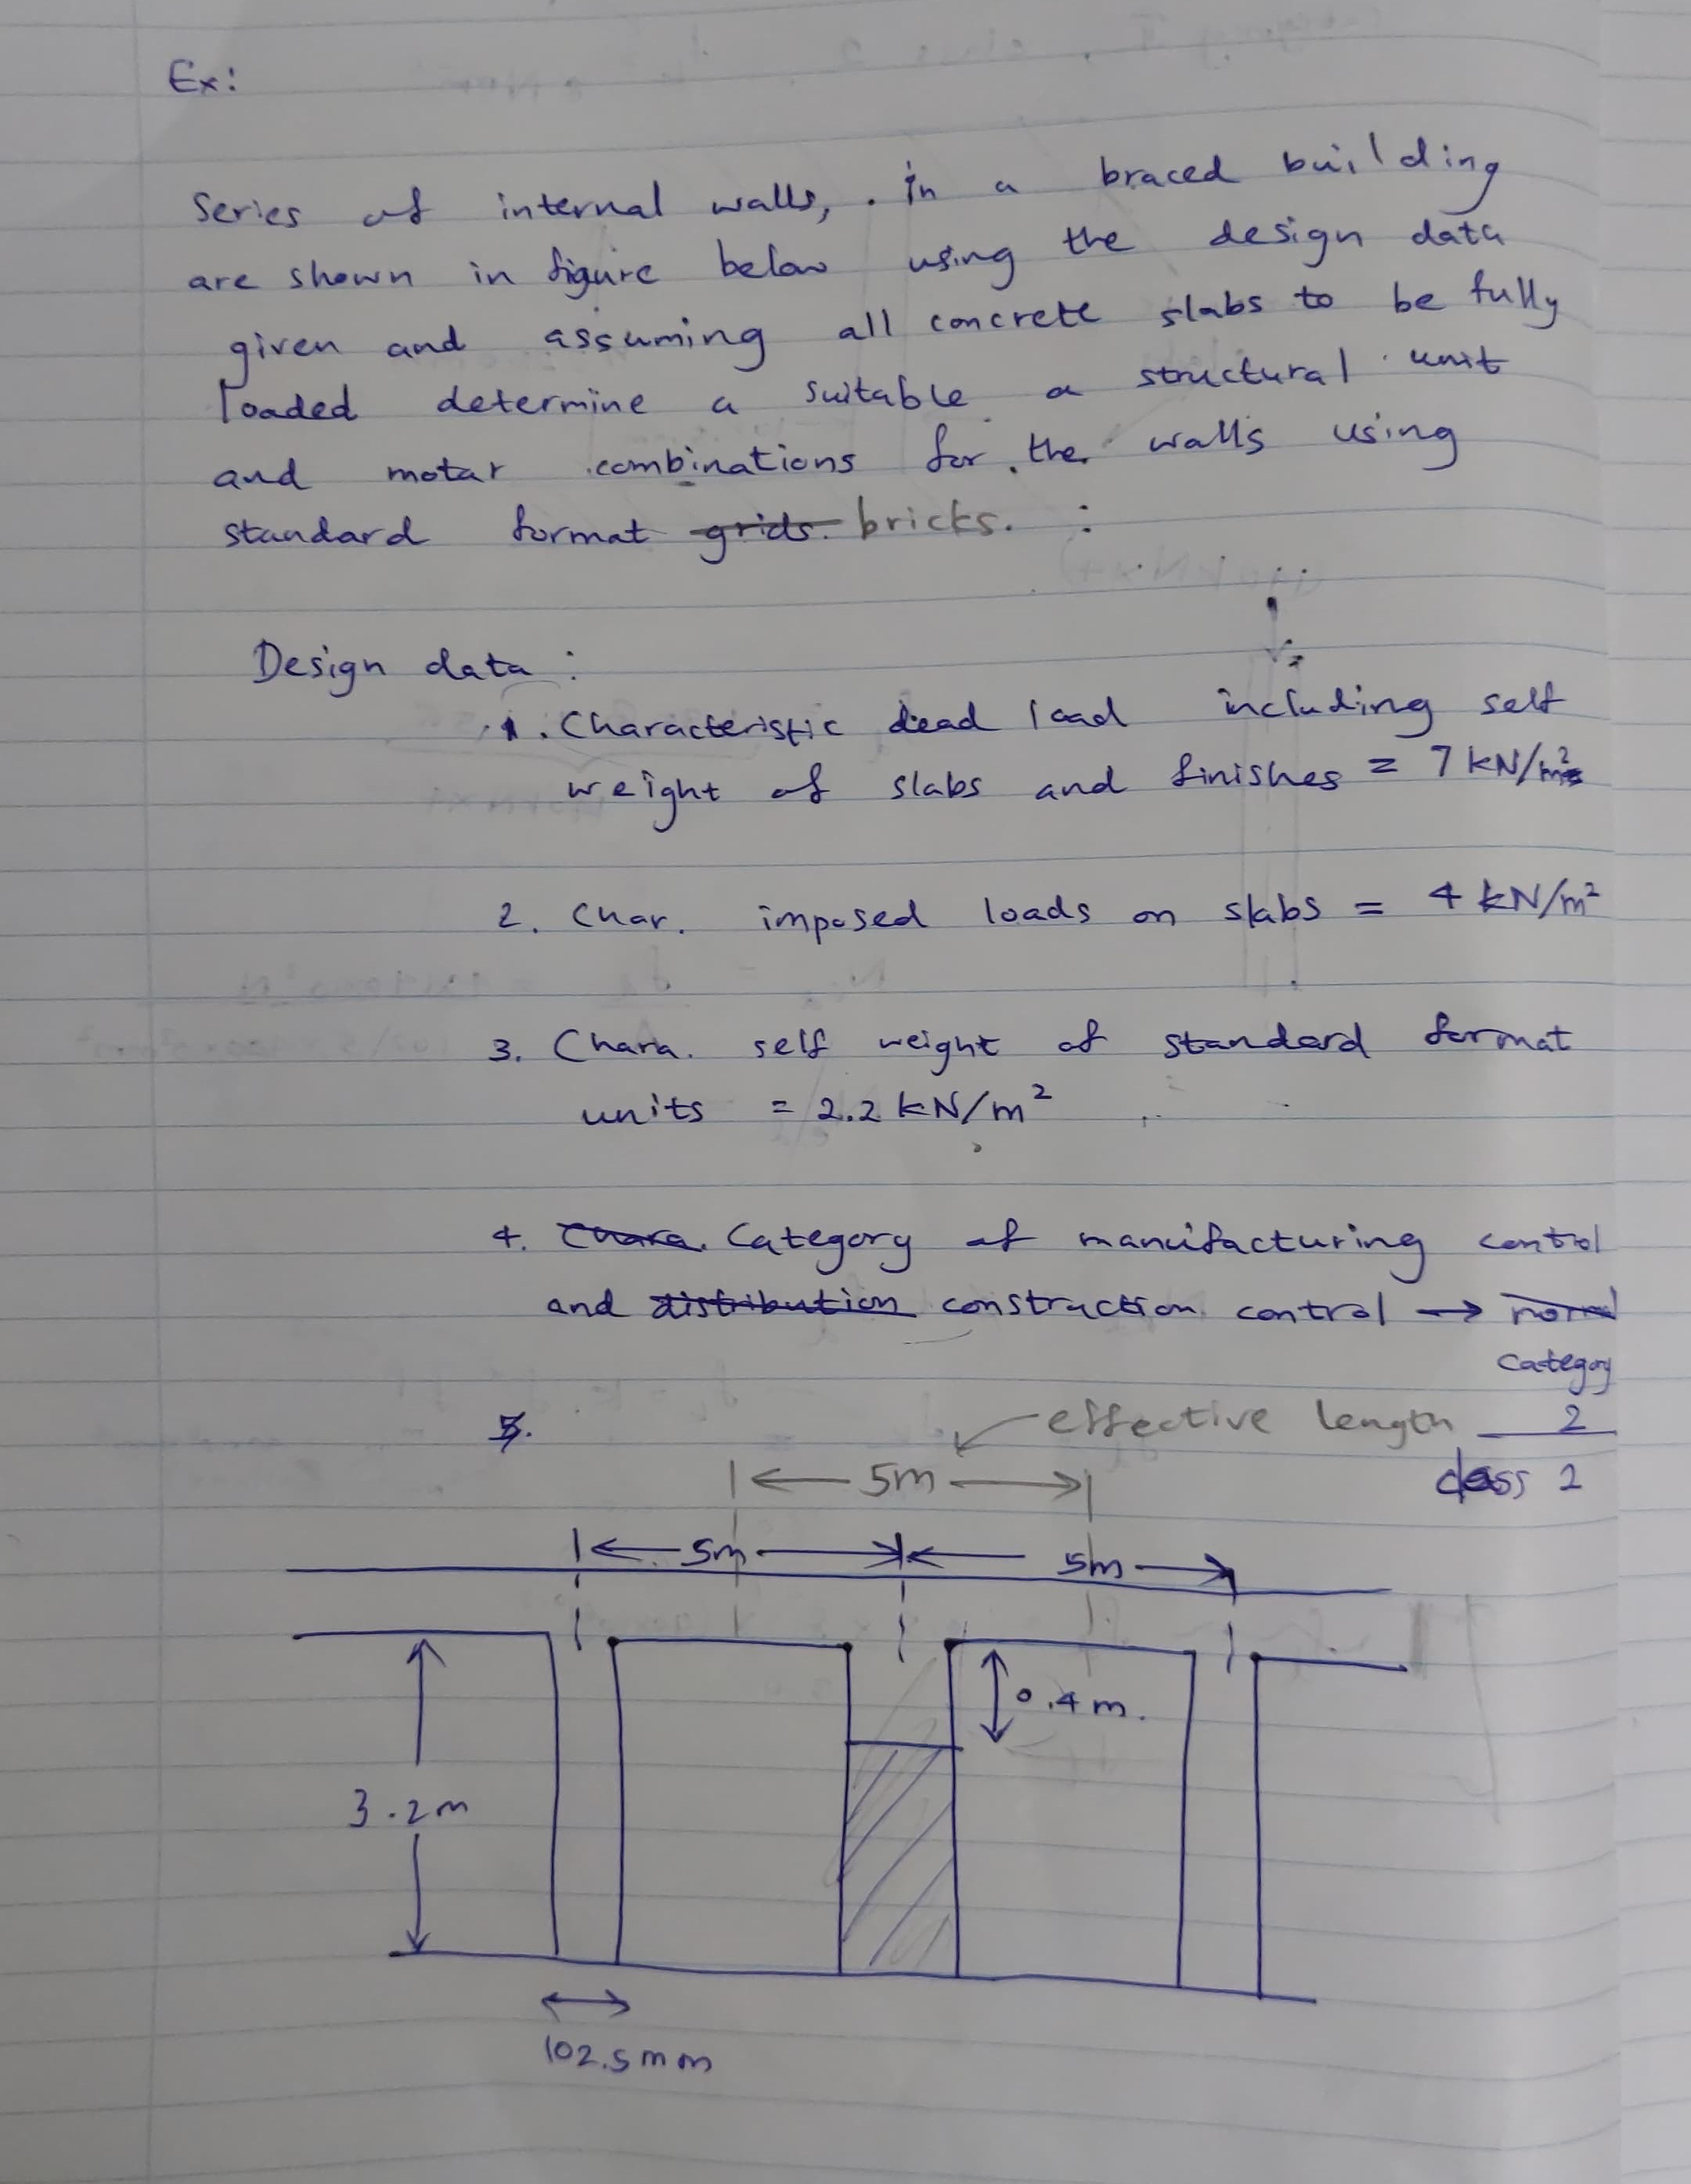 Ex:
Series of internal walls, in a braced building
are shown in figure below using the design data
given and assuming all concrete slabs to be fully
loaded determine a suitable a structural unit
and motar combinations for the walls using
standard format grids. bricks. :
Design data :
1. Characteristic dead load including self
weight of slabs and finishes = 7 kN/m²
2. Char. imposed loads on slabs = 4 kN/m²
3. Chara. self weight of standard format
units = 2.2 kN/m²
4. Chara. Category of manufacturing control
and distribution construction control →
category
2
class 2
5.
effective length
5m
5m
5m
0.4 m.
3.2m
102.5mm